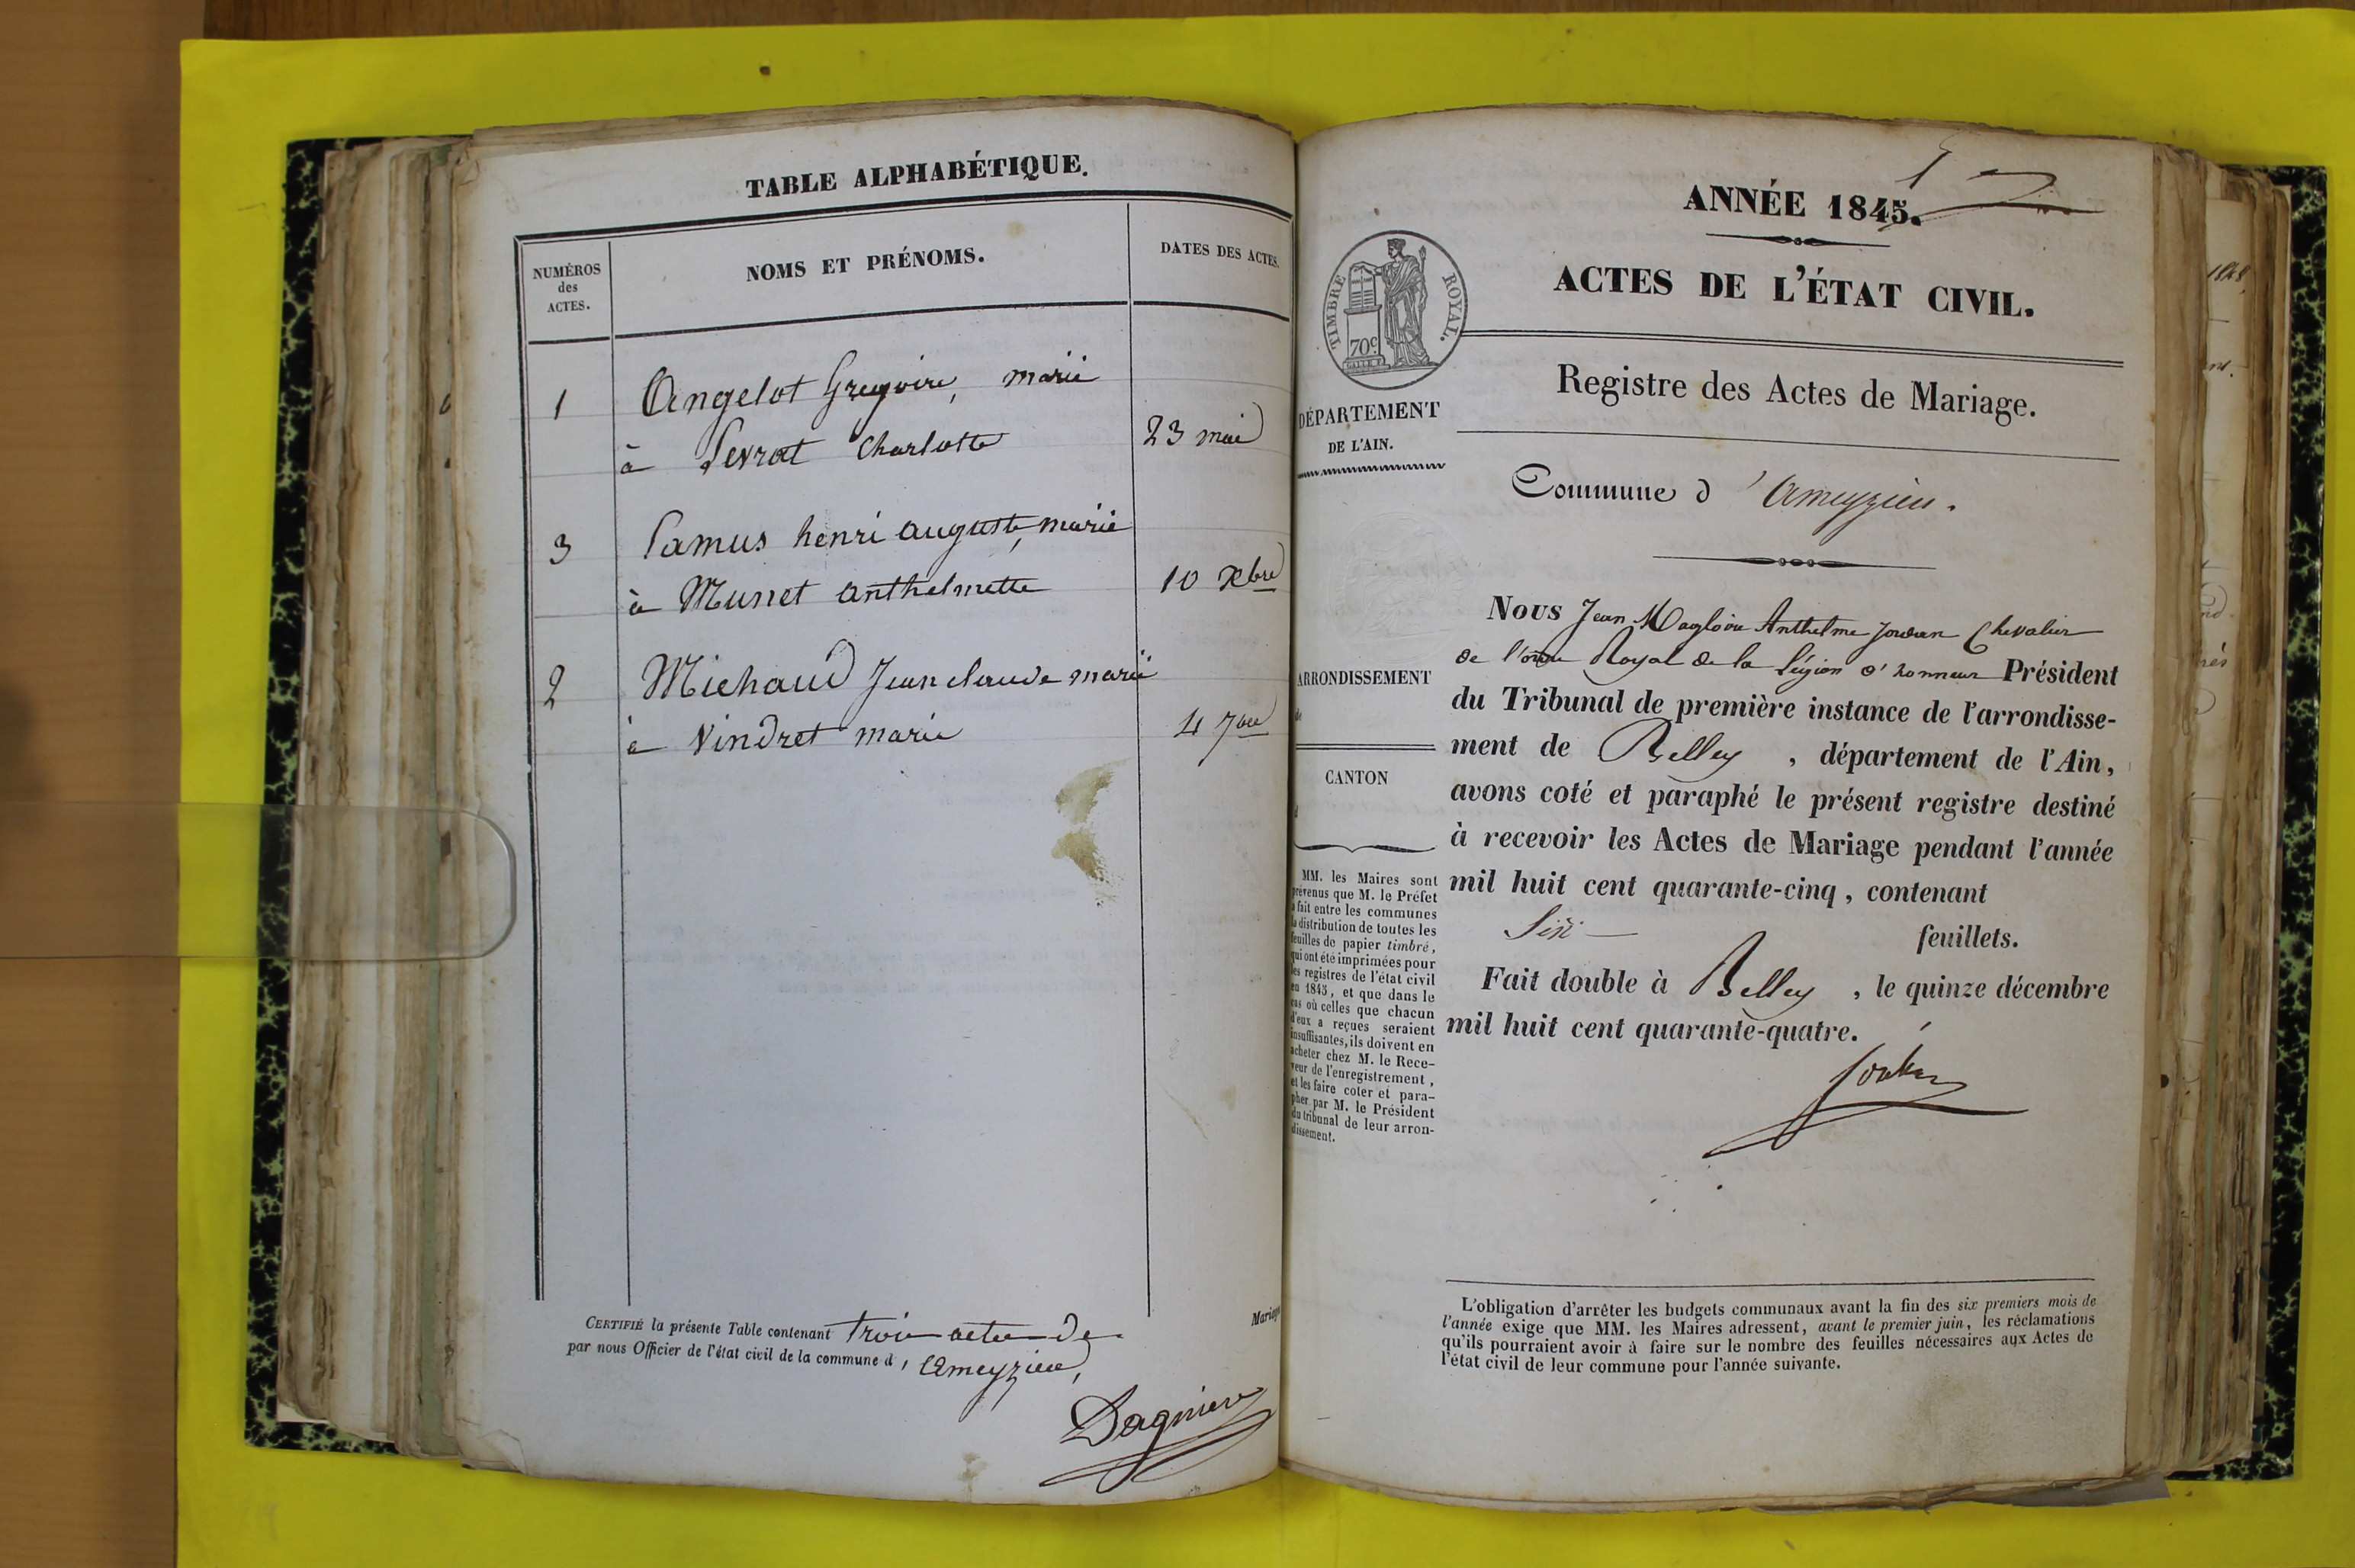 TABLE ALPHABÉTIQUE.
NUMÉROS
des
ACTES.
NOMS ET PRÉNOMS.
DATES DES ACTES.
1 Angelot Gregoire, marié
à Sevrat Charlotte 23 mai
3 Camus henri auguste, marié
à Munet anthelmette 10 Xbre
2 Michaud Jean claude marié
à Vindret marie 4 7bre
CERTIFIÉ la présente Table contenant trois actes de
par nous Officier de l'état civil de la commune d'Ameyzieu,
Dagnieux
Mariage
1
ANNÉE 1845.
TIMBRE ROYAL.
70c
ACTES DE L'ÉTAT CIVIL.
Registre des Actes de Mariage.
DÉPARTEMENT
DE L'AIN.
Commune d'Ameyzieu.
ARRONDISSEMENT
de
CANTON
d
MM. les Maires sont
prévenus que M. le Préfet
a fait entre les communes
la distribution de toutes les
feuilles de papier timbré,
qui ont été imprimées pour
les registres de l'état civil
en 1845, et que dans le
cas où celles que chacun
d'eux a reçues seraient
insuffisantes, ils doivent en
acheter chez M. le Rece-
veur de l'enregistrement,
et les faire coter et para-
pher par M. le Président
du tribunal de leur arron-
dissement.
Nous Jean Magloire Anthelme Chevalier
de l'ordre Royal de la Légion d'honneur Président
du Tribunal de première instance de l'arrondisse-
ment de Belley, département de l'Ain,
avons coté et paraphé le présent registre destiné
à recevoir les Actes de Mariage pendant l'année
mil huit cent quarante-cinq, contenant
Six feuillets.
Fait double à Belley, le quinze décembre
mil huit cent quarante-quatre.
L'obligation d'arrêter les budgets communaux avant la fin des six premiers mois de
l'année exige que MM. les Maires adressent, avant le premier juin, les réclamations
qu'ils pourraient avoir à faire sur le nombre des feuilles nécessaires aux Actes de
l'état civil de leur commune pour l'année suivante.